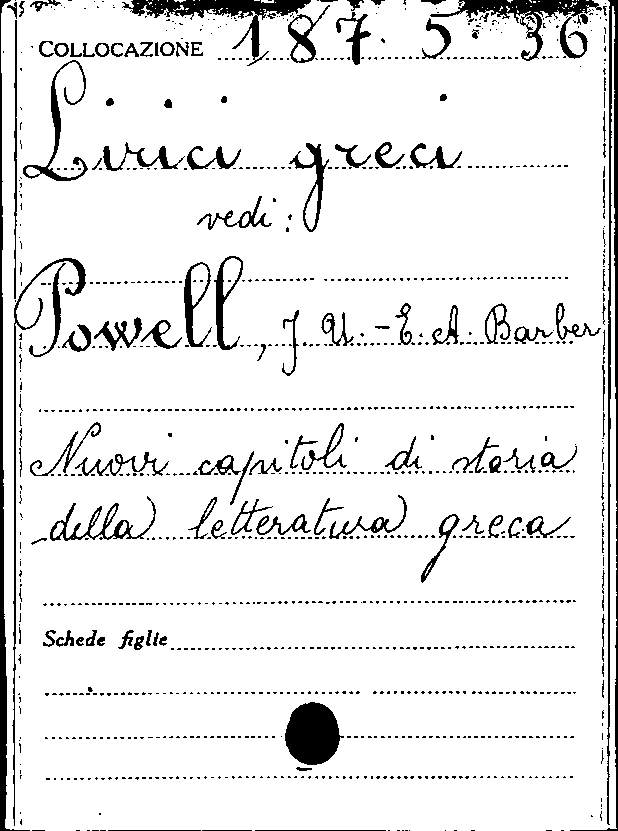 COLLOCAZIONE 187. 5. 36
Lirici greci
vedi:
Powell, J. U. - E. A. Barber
Nuovi capitoli di storia
della letteratura greca
Schede figlie